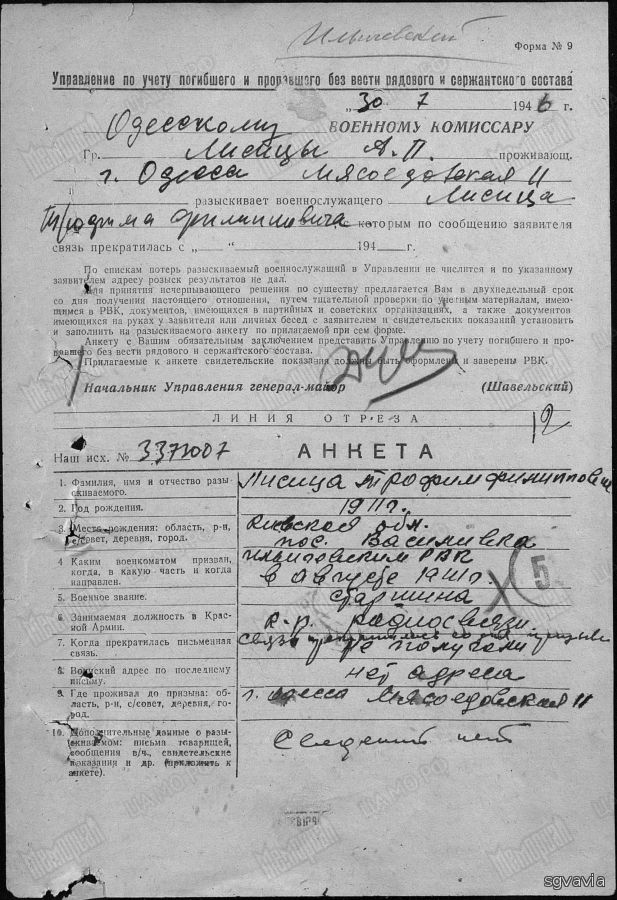 Ильичевский
Форма № 9
Управление по учету погибшего и пропавшего без вести рядового и сержантского состава
„30" 7 1946 г.
Одесскому ВОЕННОМУ КОМИССАРУ
Гр. Лисицы А.П. проживающ.
г. Одесса Мясоедовская 11
разыскивает военнослужащего Лисица
Трофима Филипповича с которым по сообщению заявителя
связь прекратилась с „ " 194 г.
По спискам потерь разыскиваемый военнослужащий в Управлении не числится и по указанному
заявителем адресу розыск результатов не дал.
Для принятия исчерпывающего решения по существу предлагается Вам в двухнедельный срок
со дня получения настоящего отношения, путем тщательной проверки по учетным материалам, имею-
щимся в РВК, документов, имеющихся в партийных и советских организациях, а также документов
имеющихся на руках у заявителя или личных бесед с заявителем и свидетельских показаний установить
и заполнить на разыскиваемого анкету по прилагаемой при сем форме.
Анкету с Вашим обязательным заключением представить Управлению по учету погибшего и про-
павшего без вести рядового и сержантского состава.
Прилагаемые к анкете свидетельские показания должны быть оформлены и заверены РВК.
Начальник Управления генерал-майор (Шавельский)
ЛИНИЯ ОТРЕЗА
12
Наш исх. № 3371007 АНКЕТА
1. Фамилия, имя и отчество разы-
скиваемого.
Лисица Трофим Филиппович
2. Год рождения.
1911 г.
3. Место рождения: область, р-н,
с/совет, деревня, город.
Киевская обл.
пос. Василивка
4. Каким военкоматом призван,
когда, в какую часть и когда
направлен.
Ильичевским РВК
в августе 1941 г.
5
5. Военное звание.
старшина
6. Занимаемая должность в Крас-
ной Армии.
к-р. радиосвязи.
7. Когда прекратилась письменная
связь.
связь прекратилась со дня призыва
не получали
8. Воинский адрес по последнему
письму.
нет адреса
9. Где проживал до призыва: об-
ласть, р-н, с/совет, деревня, го-
род.
г. Одесса Мясоедовская 11
10. Дополнительные данные о разы-
скиваемом: письма товарищей,
сообщения в/ч., свидетельские
показания и др. (приложить к
анкете).
Сведений нет
МЕМОРИАЛ
ЦАМО.РФ
sgvavia